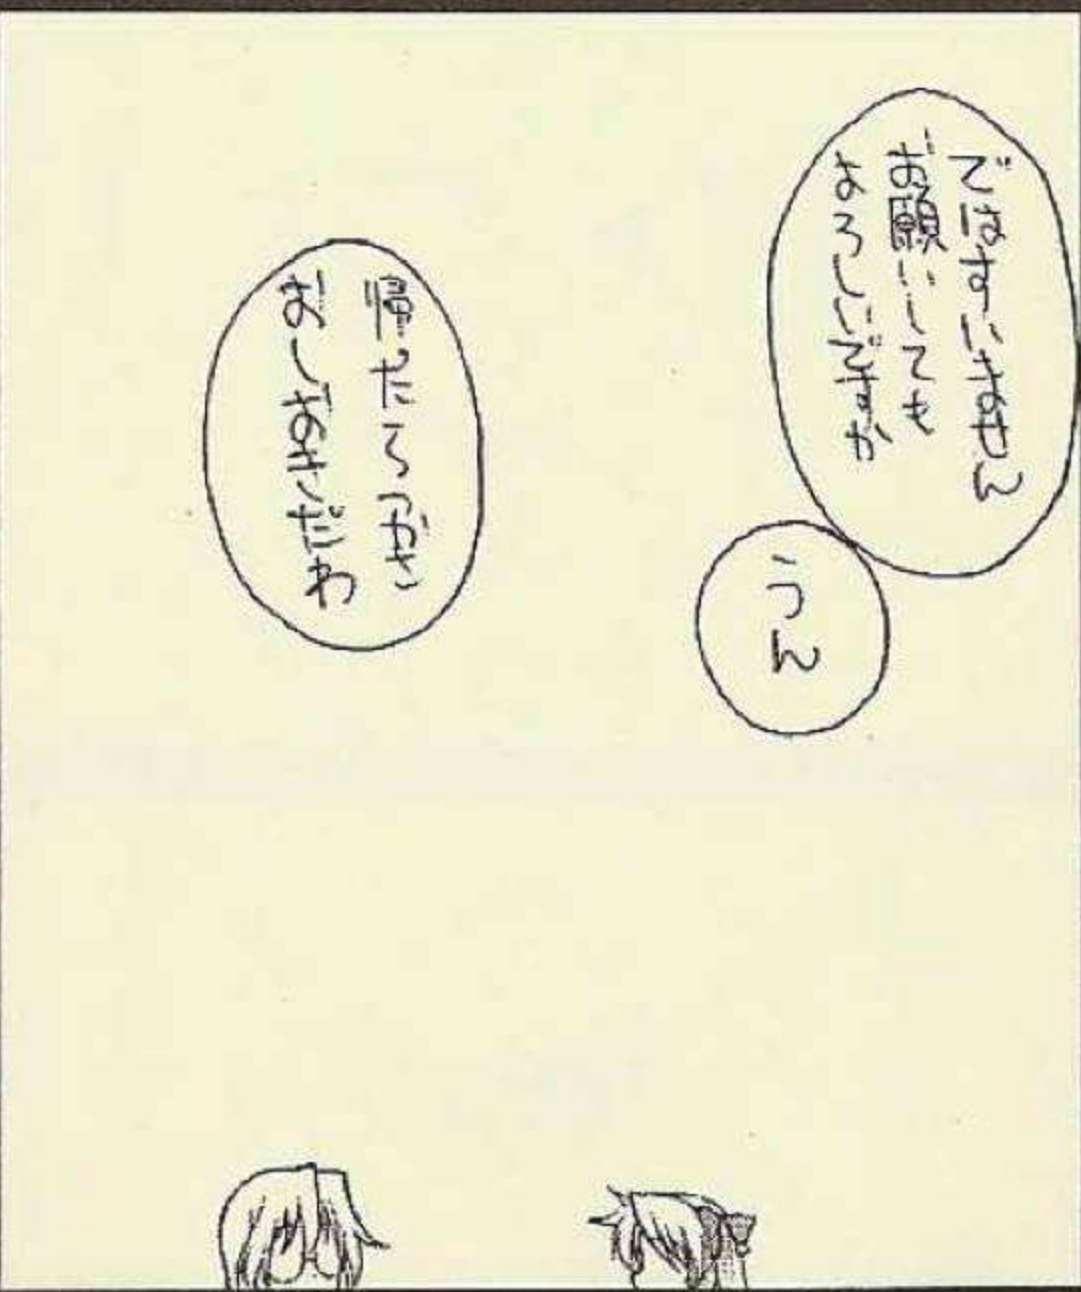 ではすいません
お願いしても
よろしいですか
うん
帰たらつかさ
おしおきだわ